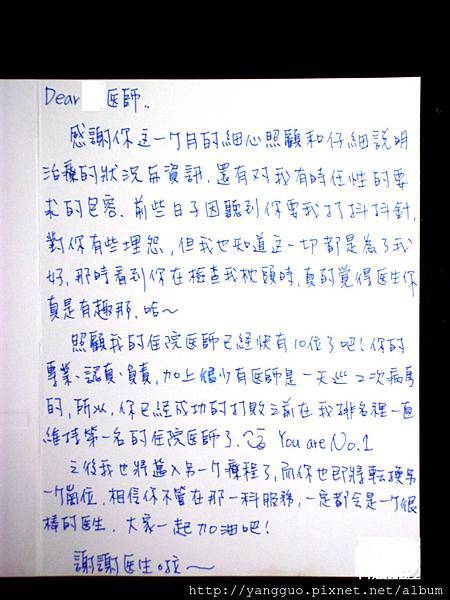 Dear 医師..
感謝你這一个月的細心照顧和仔細說明
治療的狀況与資訊.還有对我有時任性的要
求的包容.前些日子因聽到你要我打抖抖針,
對你有些埋怨,但我也知道這一切都是為了我
好,那時看到你在檢查我枕頭時,真的覚得医生你
真是有趣耶.哈~
照顧我的住院医師已經快有10位了吧!你的
專業、認真、負責,加上很少有医師是一天巡2次病房
的,所以,你已經成功的打敗之前在我排名裡一直
維持第一名的住院医師了. You are No.1
之後我也將邁入另一个療程了,而你也即將転換另
一个崗位.相信你不管在那一科服務,一定都会是一个很
棒的医生.大家一起加油吧!
謝謝医生啦~
http://yangguo.pixnet.net/album